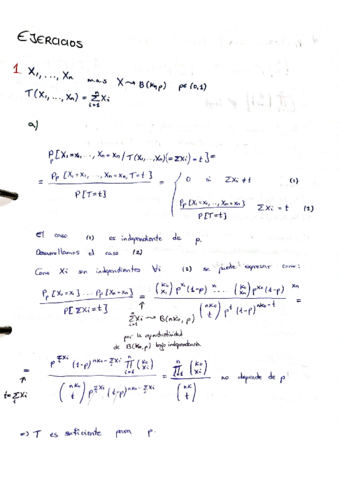 EJERCICIOS
1 X₁, ..., Xₙ m.a.s X → B(k₀,p) p∈(0,1)
T(X₁, ..., Xₙ) = Σⁿᵢ₌₁ Xᵢ
a)
Pₚ[X₁=x₁, ..., Xₙ=xₙ / T(X₁,...,Xₙ)(=ΣXᵢ)=t] =
= Pₚ[X₁=x₁, ..., Xₙ=xₙ, T=t] / P[T=t] = { 0 si Σxᵢ≠t (1)
Pₚ[X₁=x₁, ..., Xₙ=xₙ] / P[T=t] Σxᵢ=t (2)
El caso (1) es independiente de p.
Desarrollamos el caso (2)
Como Xᵢ son independientes ∀i (2) se puede expresar como:
Pₚ[X₁=x₁] ... Pₚ[Xₙ=xₙ] / P[ΣXᵢ=t] =
Σⁿᵢ₌₁ Xᵢ → B(nk₀, p)
por la reproductividad
de B(k₀,p) bajo independencia
= p^Σxᵢ (1-p)^(nk₀-Σxᵢ) ∏ⁿᵢ₌₁ (k₀ xᵢ) / (nk₀ t) p^Σxᵢ (1-p)^(nk₀-Σxᵢ) = ∏ⁿᵢ₌₁ (k₀ xᵢ) / (nk₀ t) no depende de p
t=Σxᵢ
⇒ T es suficiente para p.